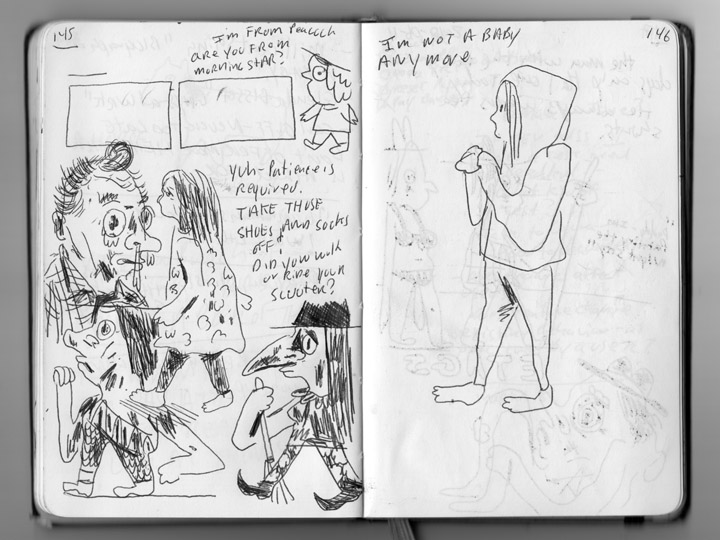 145
I'm FROM Peacock
ARE YOU FROM
MORNING STAR?
Yuh-Patience is
Required.
TAKE THOSE
SHOES AND SOCKS
OFF"
DID YOU WALK
OR RIDE YOUR
SCOOTER?
146
I'm NOT A BABY
ANYMORE